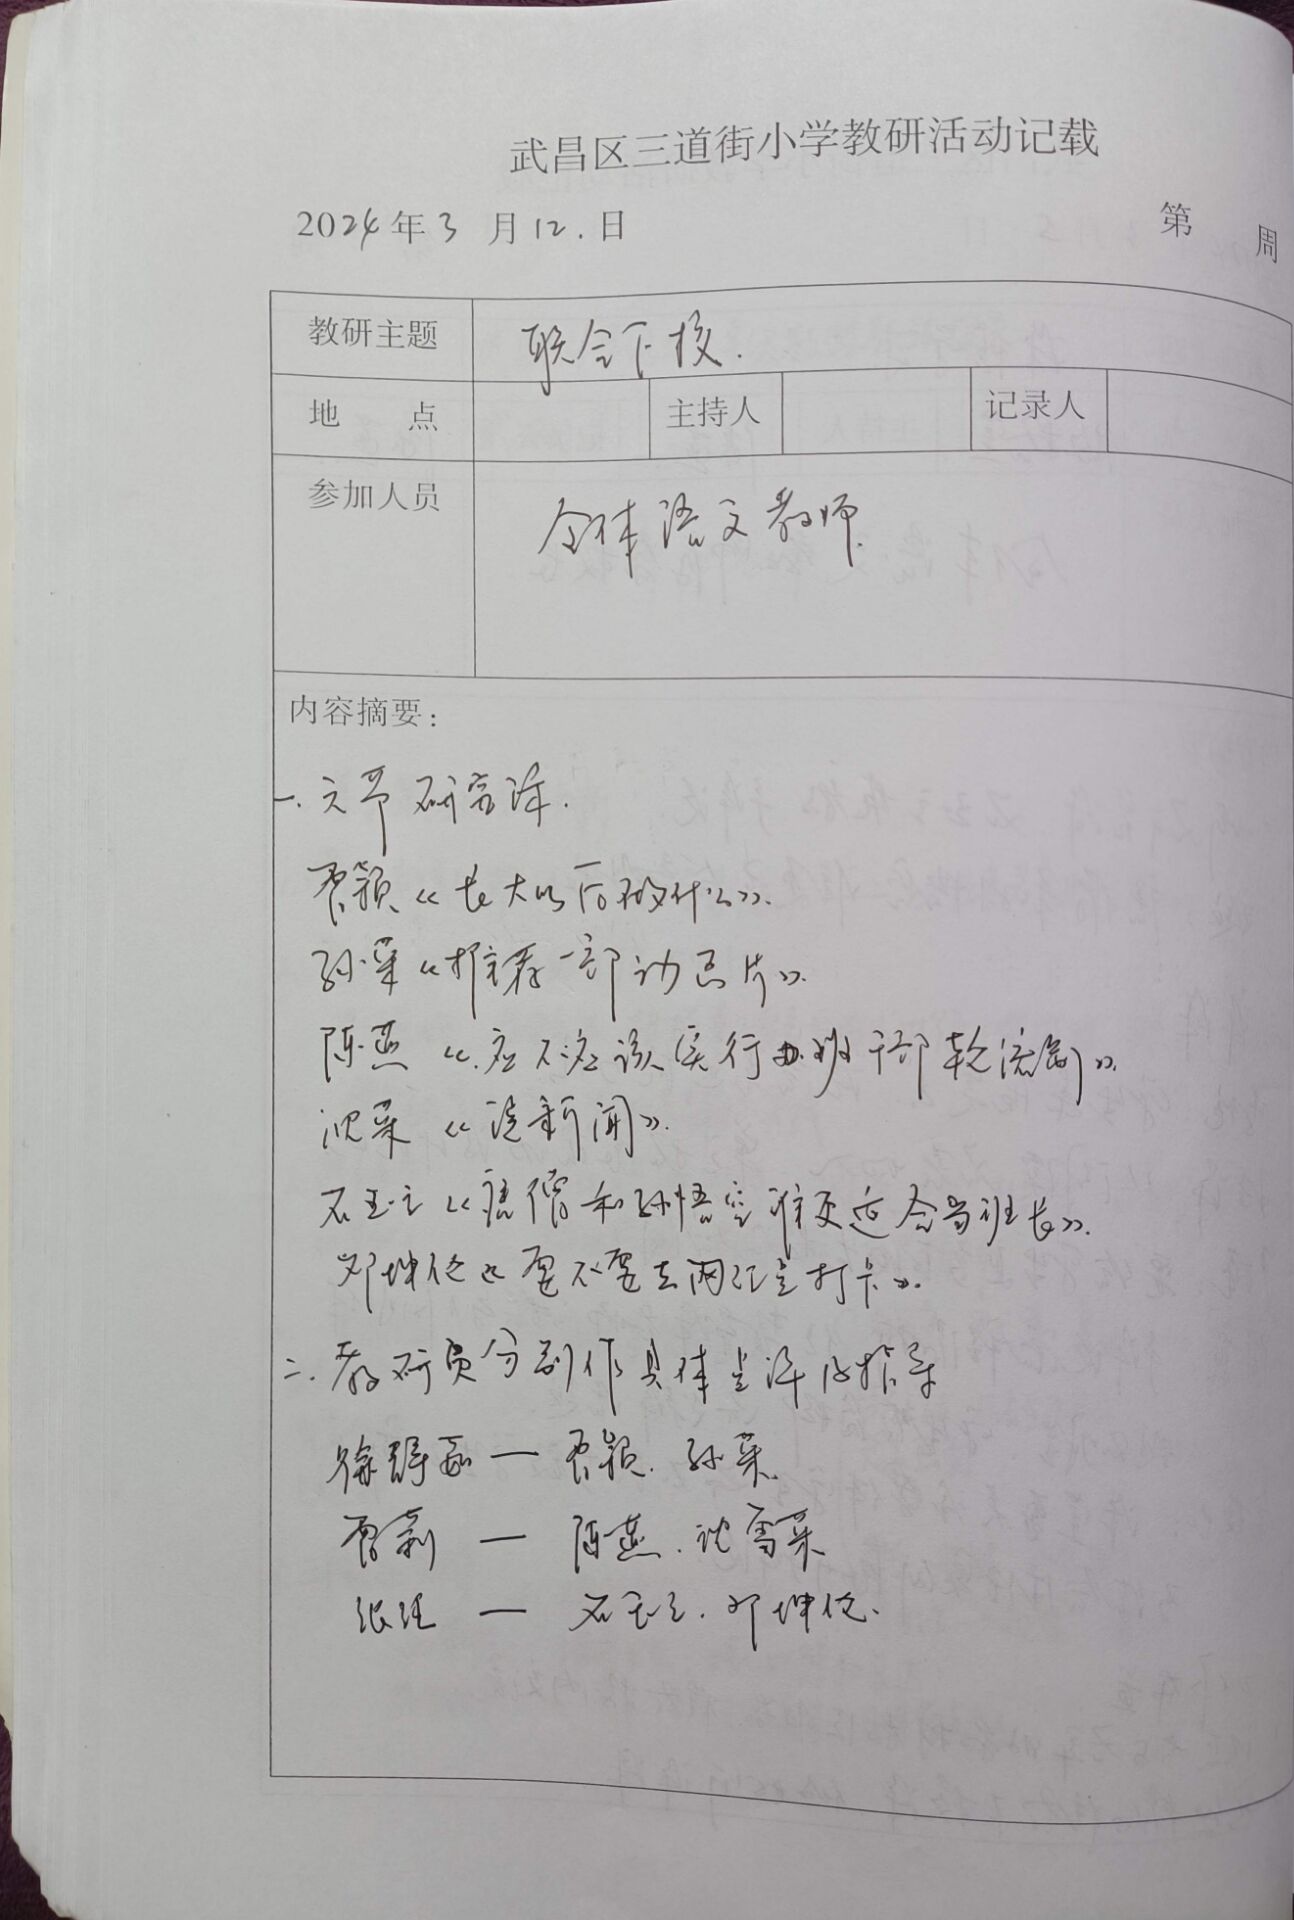 武昌区三道街小学教研活动记载
2024年3月12.日 第 周
教研主题 联合下校.
地 点 主持人 记录人
参加人员 全体语文教师.
内容摘要：
一.六节研究课.
贾颖《长大以后做什么》.
孙菜《推荐一部动画片》.
陈燕《应不应该实行班干部轮流制》.
沈菜《说新闻》.
石玉立《唐僧和孙悟空谁更适合当班长》.
邓坤伦《要不要去网红点打卡》.
二.教研员分别作具体点评及指导
徐静茹 — 贾颖.孙菜.
曾莉 — 陈燕.沈雪菜
张红 — 石玉立.邓坤伦.